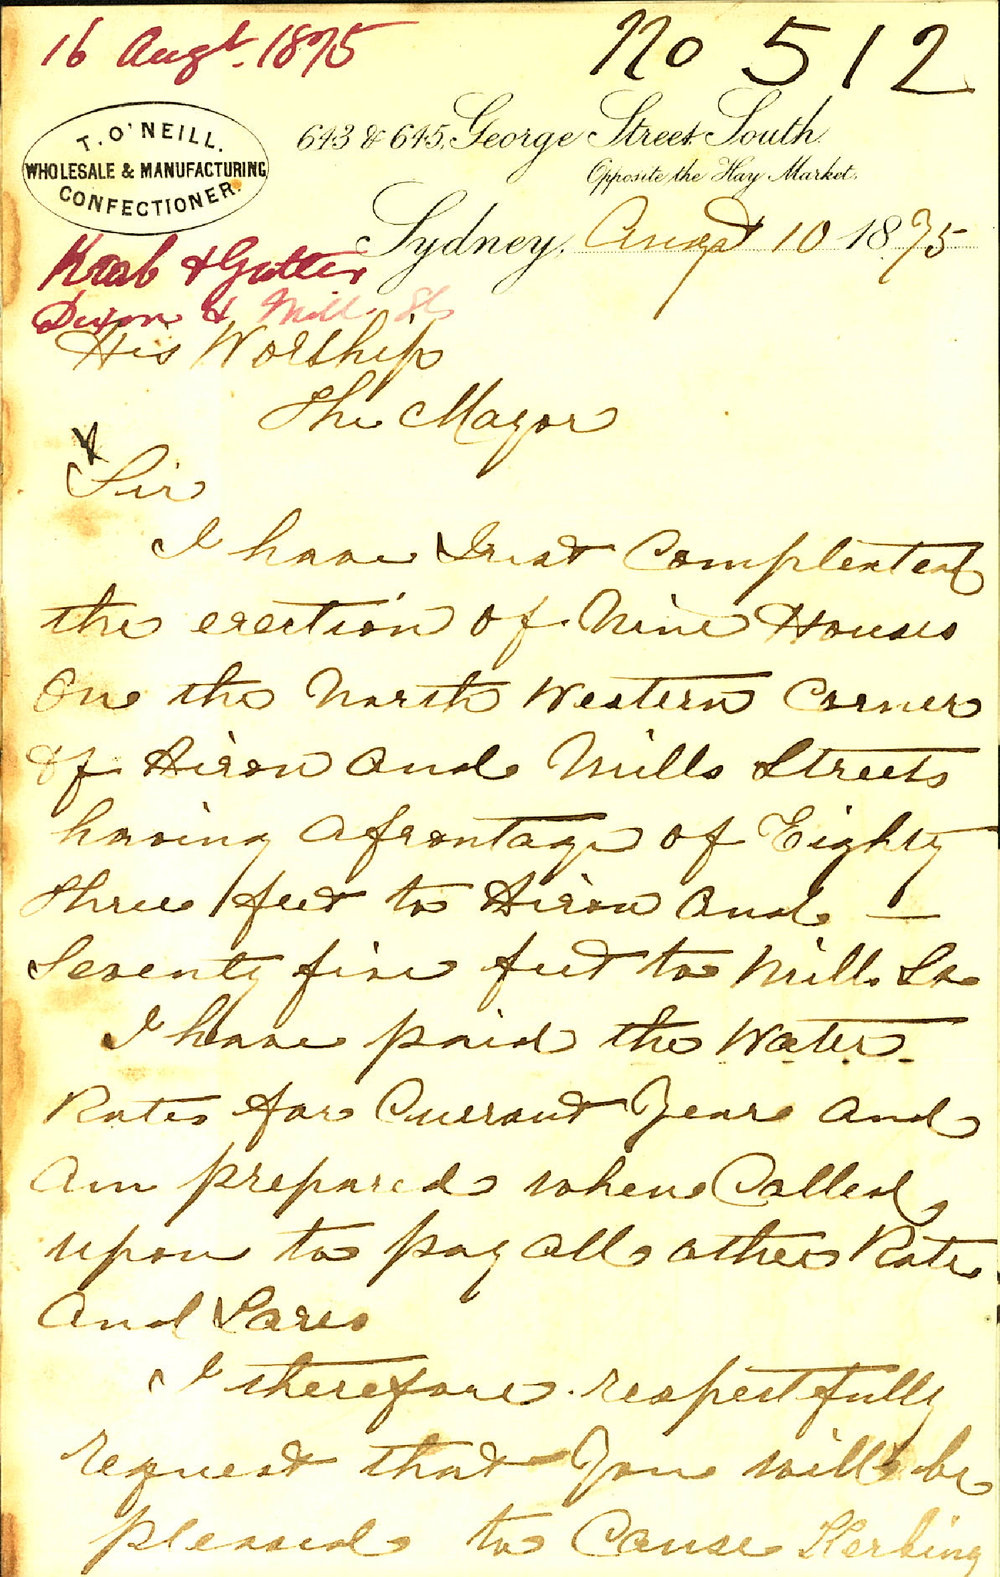 16 Augt. 1875
No 512
T. O'NEILL.
WHOLESALE & MANUFACTURING
CONFECTIONER.
643 & 645, George Street South.
Opposite the Hay Market.
Sydney, Augst 10 1875
Kerb & Gutter
Dixon & Mill St
His Worship
The Mayor
Sir
I have Just Compleated
the erection of Nine Houses
On the North Western Corner
of Dixon and Mills Streets
having a frontage of Eighty
Three feet to Dixon and —
Seventy five feet to Mill St
I have paid the Water
Rates for Currant Year and
Am prepared when Called
upon to pay all other Rates
And Taxes
I therefore respectfully
request that You will be
pleased to Cause Kerbing